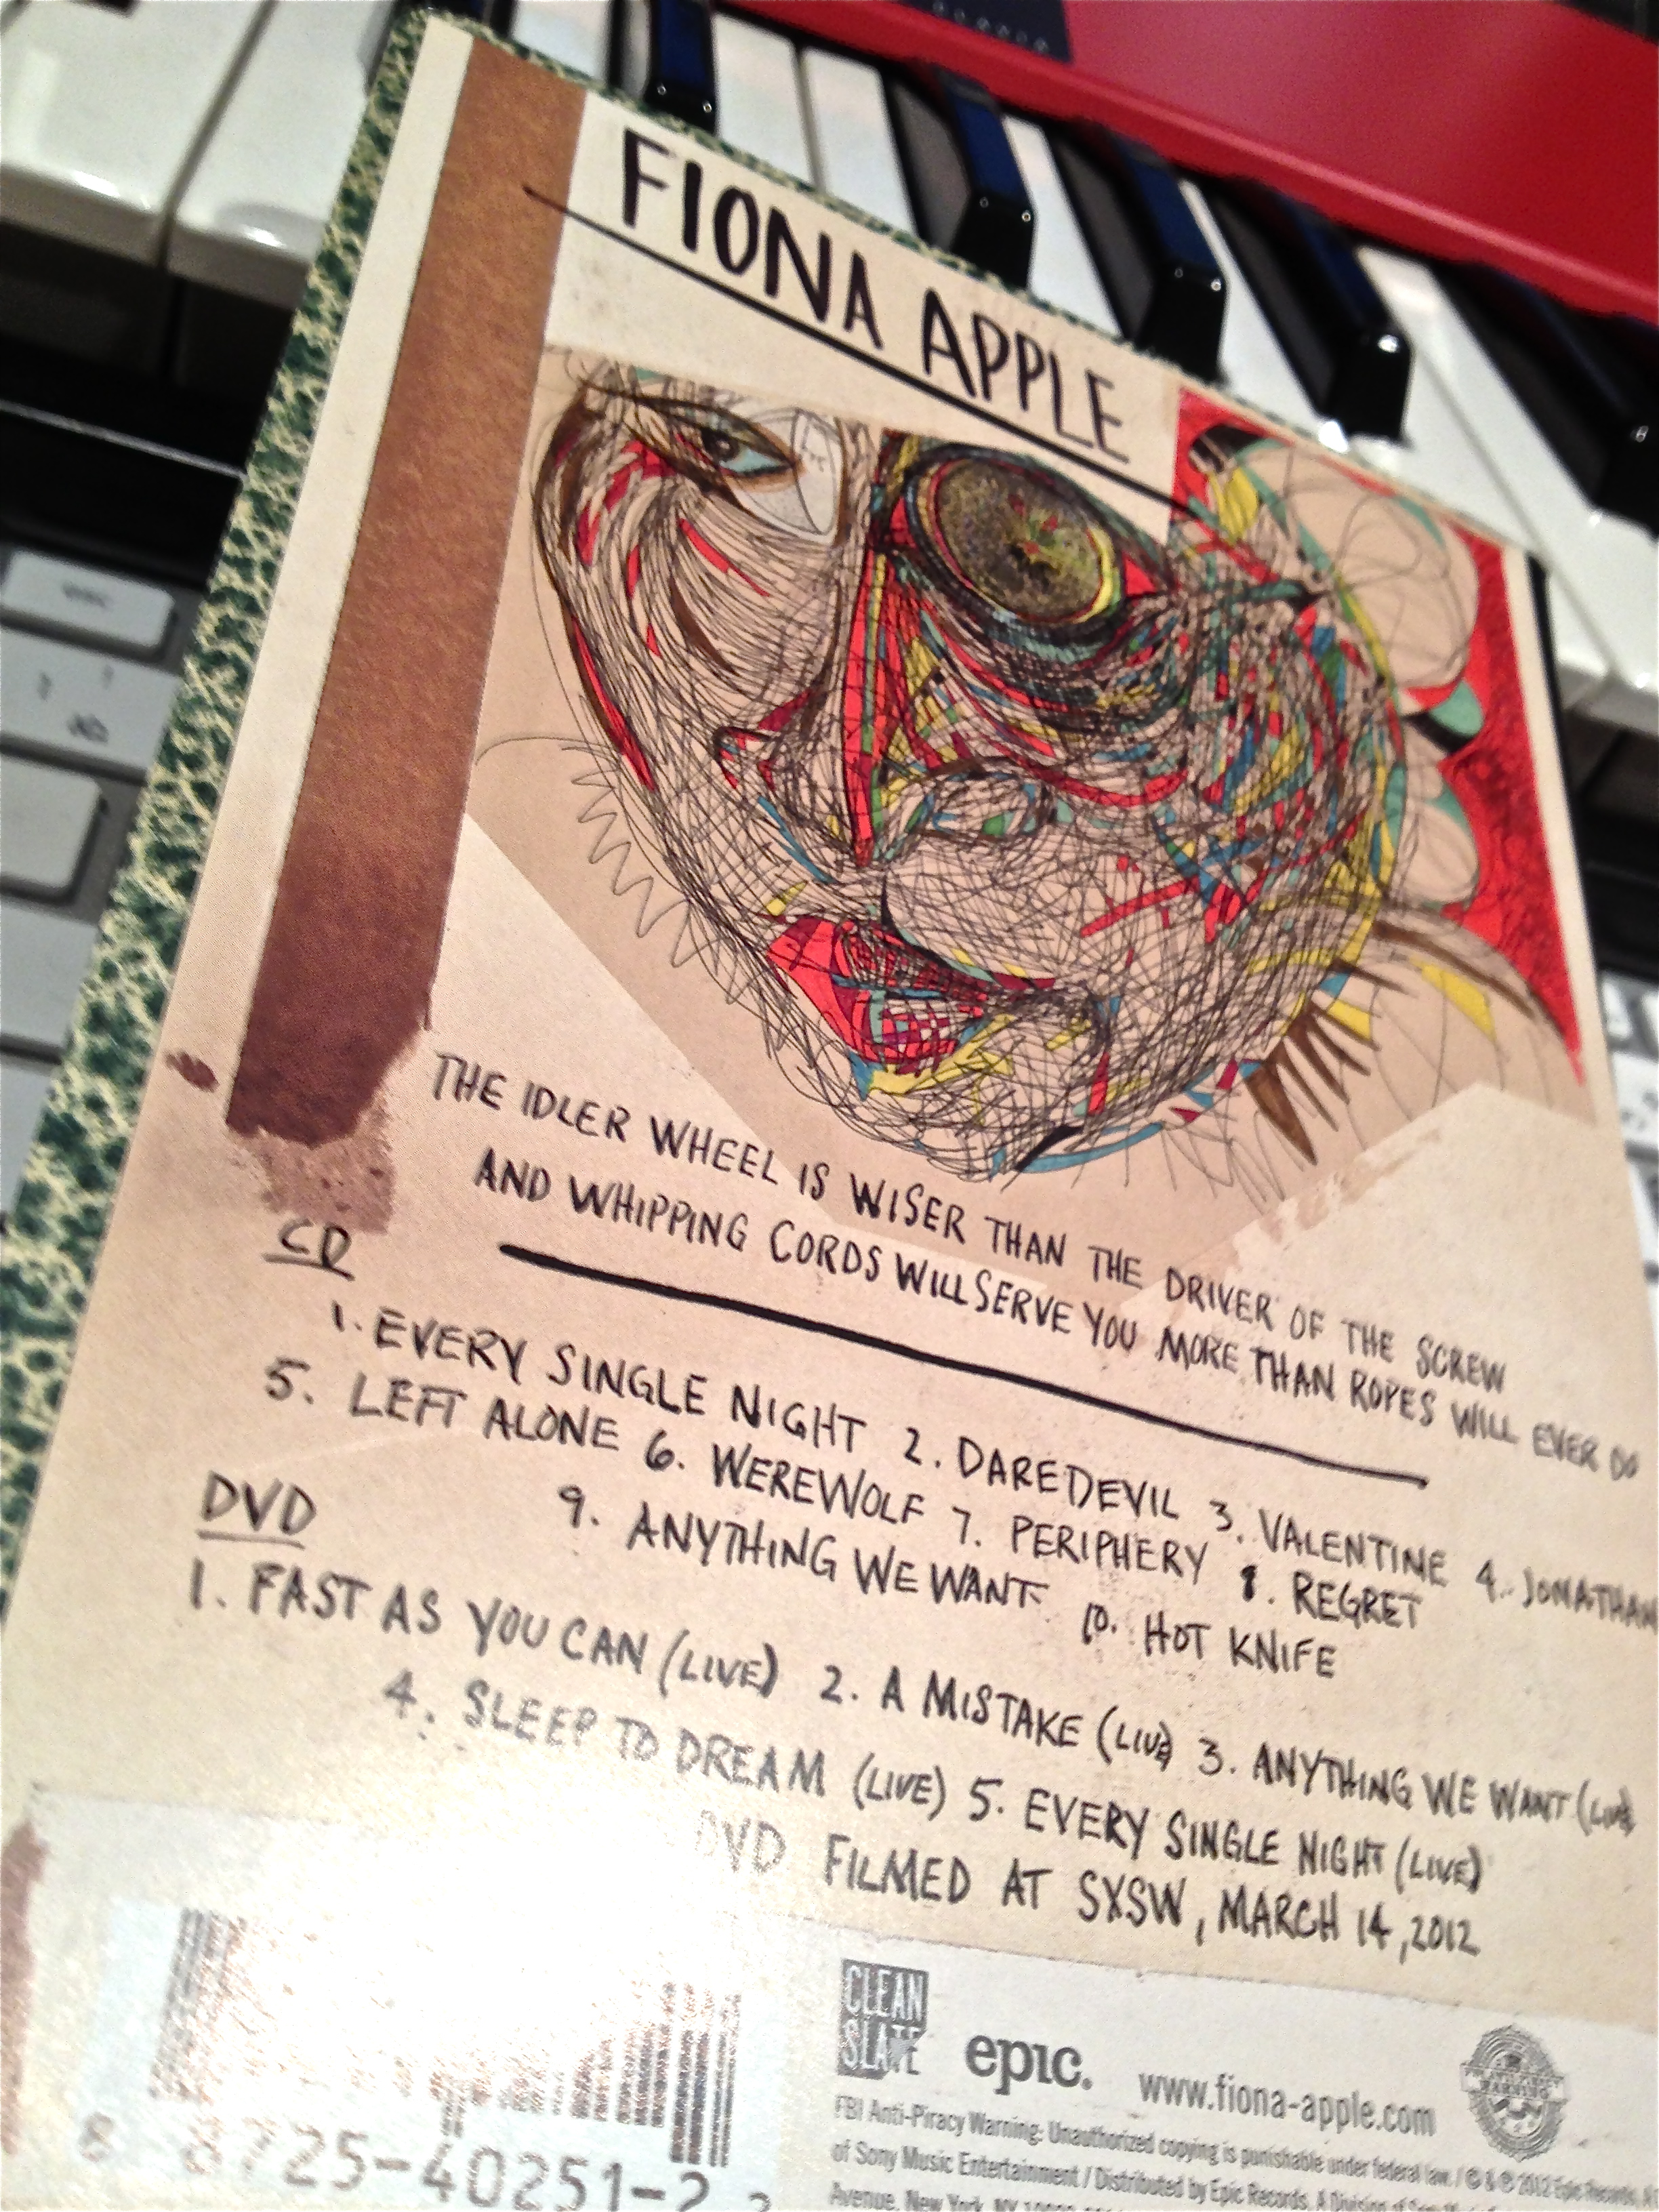 FIONA APPLE
THE IDLER WHEEL IS WISER THAN THE DRIVER OF THE SCREW
AND WHIPPING CORDS WILL SERVE YOU MORE THAN ROPES WILL EVER DO
CD
1. EVERY SINGLE NIGHT 2. DAREDEVIL 3. VALENTINE 4. JONATHAN
5. LEFT ALONE 6. WEREWOLF 7. PERIPHERY 8. REGRET
9. ANYTHING WE WANT 10. HOT KNIFE
DVD
1. FAST AS YOU CAN (LIVE) 2. A MISTAKE (LIVE) 3. ANYTHING WE WANT (LIVE)
4. SLEEP TO DREAM (LIVE) 5. EVERY SINGLE NIGHT (LIVE)
DVD FILMED AT SXSW, MARCH 14, 2012
8 8725-40251-2
CLEAN
SLATE
epic.
www.fiona-apple.com
WARNING
FBI Anti-Piracy Warning: Unauthorized copying is punishable under federal law. / © & ℗ 2012 Epic Records, A
of Sony Music Entertainment / Distributed by Epic Records, A Division of Sony
Avenue, New York, NY